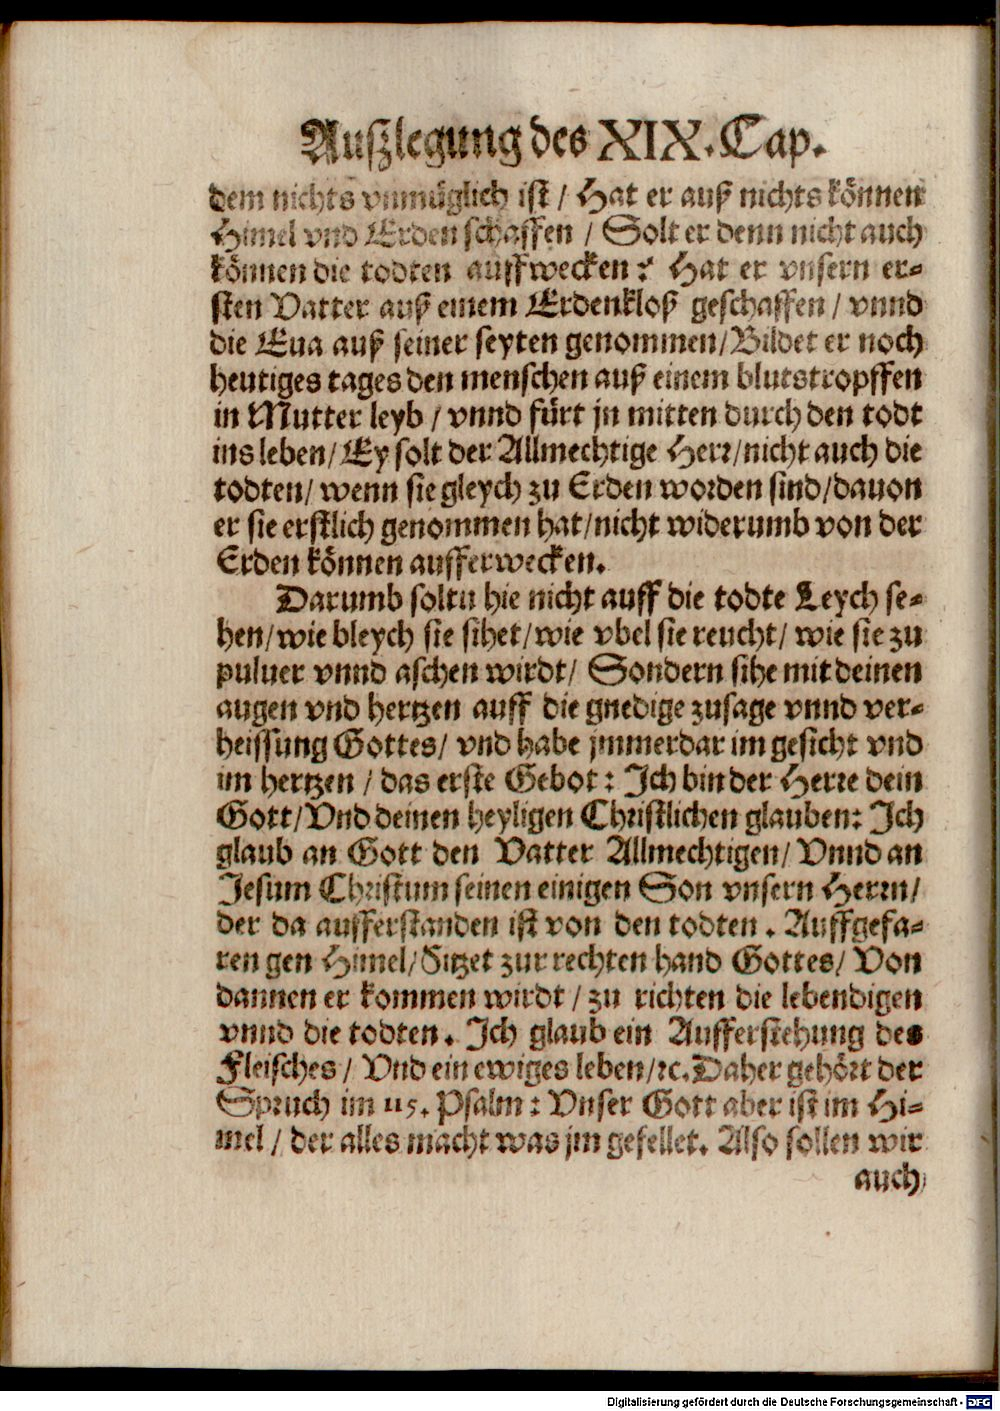 Auszlegung des XIX. Cap.
dem nichts vnmüglich ist / Hat er auß nichts können
Himel vnd Erden schaffen / Solt er denn nicht auch
können die todten auffwecken? Hat er vnsern er-
sten Vatter auß einem Erdenkloß geschaffen / vnnd
die Eua auß seiner seyten genommen / Bildet er noch
heutiges tages den menschen auß einem blutstropffen
in Mutter leyb / vnnd fürt jn mitten durch den todt
ins leben / Ey solt der Allmechtige Herr / nicht auch die
todten / wenn sie gleych zu Erden worden sind / dauon
er sie erstlich genommen hat / nicht widerumb von der
Erden können aufferwecken.
Darumb soltu hie nicht auff die todte Leych se-
hen / wie bleych sie sihet / wie vbel sie reucht / wie sie zu
puluer vnnd aschen wirdt / Sondern sihe mit deinen
augen vnd hertzen auff die gnedige zusage vnnd ver-
heissung Gottes / vnd habe jmmerdar im gesicht vnd
im hertzen / das erste Gebot: Ich bin der Herre dein
Gott / Vnd deinen heyligen Christlichen glauben: Ich
glaub an Gott den Vatter Allmechtigen / Vnnd an
Jesum Christum seinen einigen Son vnsern Herrn /
der da aufferstanden ist von den todten. Auffgefa-
ren gen Himel / Sitzet zur rechten hand Gottes / Von
dannen er kommen wirdt / zu richten die lebendigen
vnnd die todten. Ich glaub ein Aufferstehung des
Fleisches / Vnd ein ewiges leben / ꝛc. Daher gehört der
Spruch im 115. Psalm: Vnser Gott aber ist im Hi-
mel / der alles macht was jm gefellet. Also sollen wir
auch
Digitalisierung gefördert durch die Deutsche Forschungsgemeinschaft - DFG